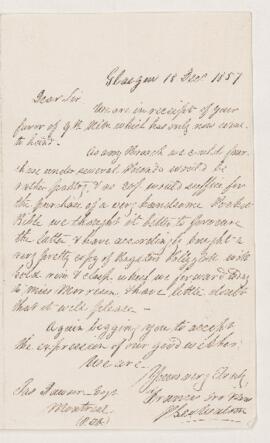 Glasgow 18 Decr 1857
Dear Sir
We are in receipt of your
favor of 9th Ulto which has only now come
to hand.
As any Broach we could pur
chase under several Pounds would be
rather paltry, & as 20/ would suffice for
the purchase of a very handsome Pocket
Bible we thought it better to favour
the latter & have accordingly bought a
very pretty copy of Bagster's with
gold rim & clasp which we forward today
to Miss & have little doubt
that it will please —
Again begging you to accept
the expression of our good wishes
We are
Yours very truly
Jas Dawson Esqr
Montreal